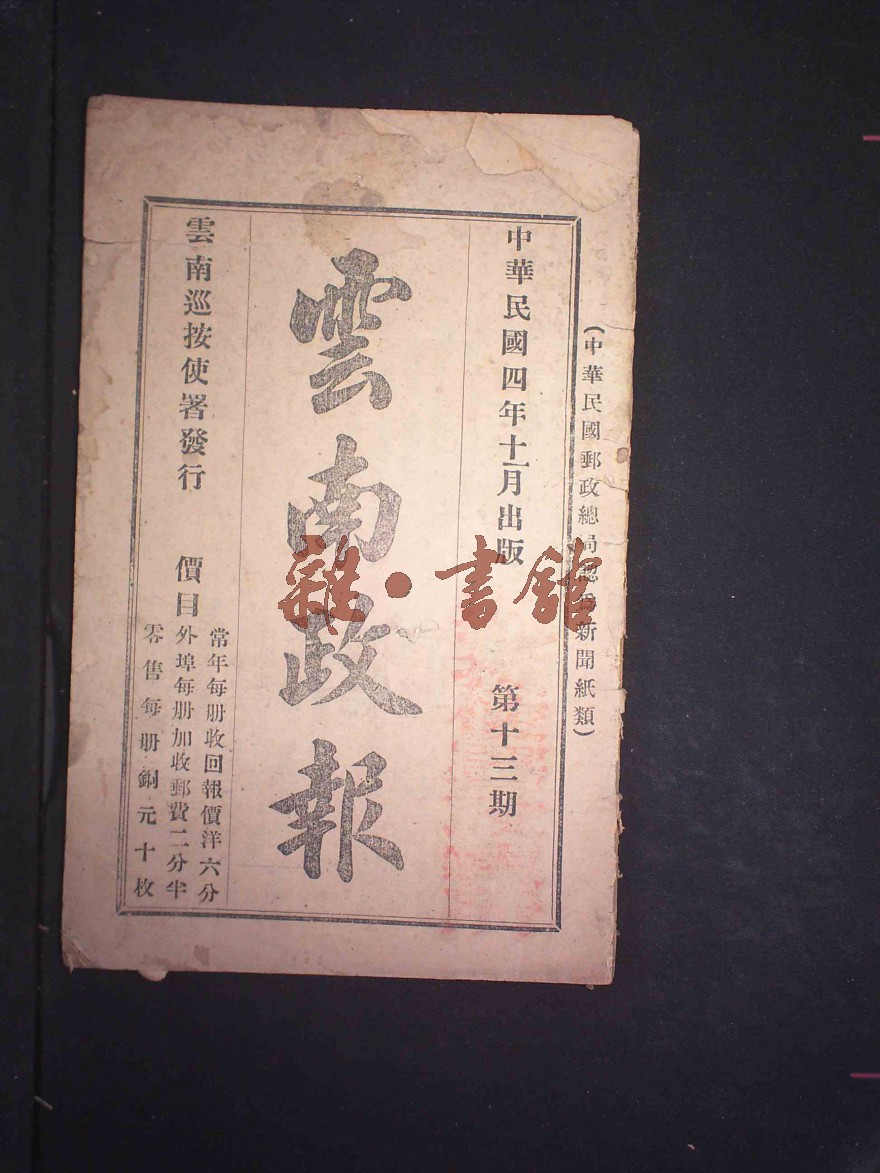 (中華民國郵政總局認爲新聞紙類)
中華民國四年十一月出版 第十三期
雲南政報
雲南巡按使署發行 價目
常年每册收回報價洋六分
外埠每册加收郵費二分半
零售每册銅元十枚
雜·書館